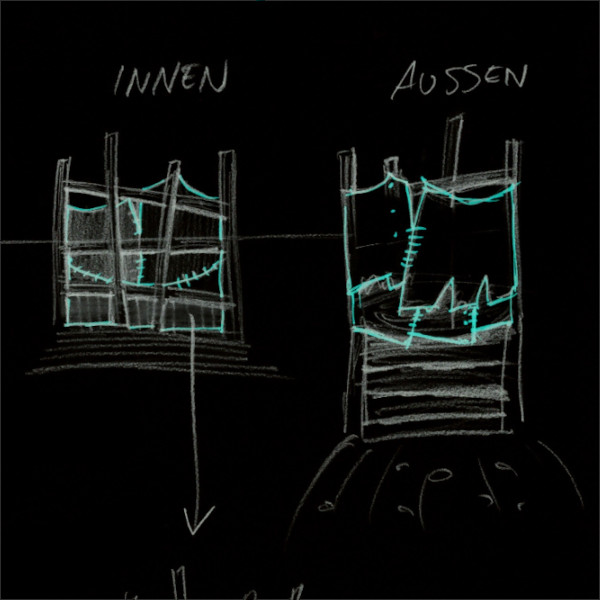 INNEN
AUSSEN